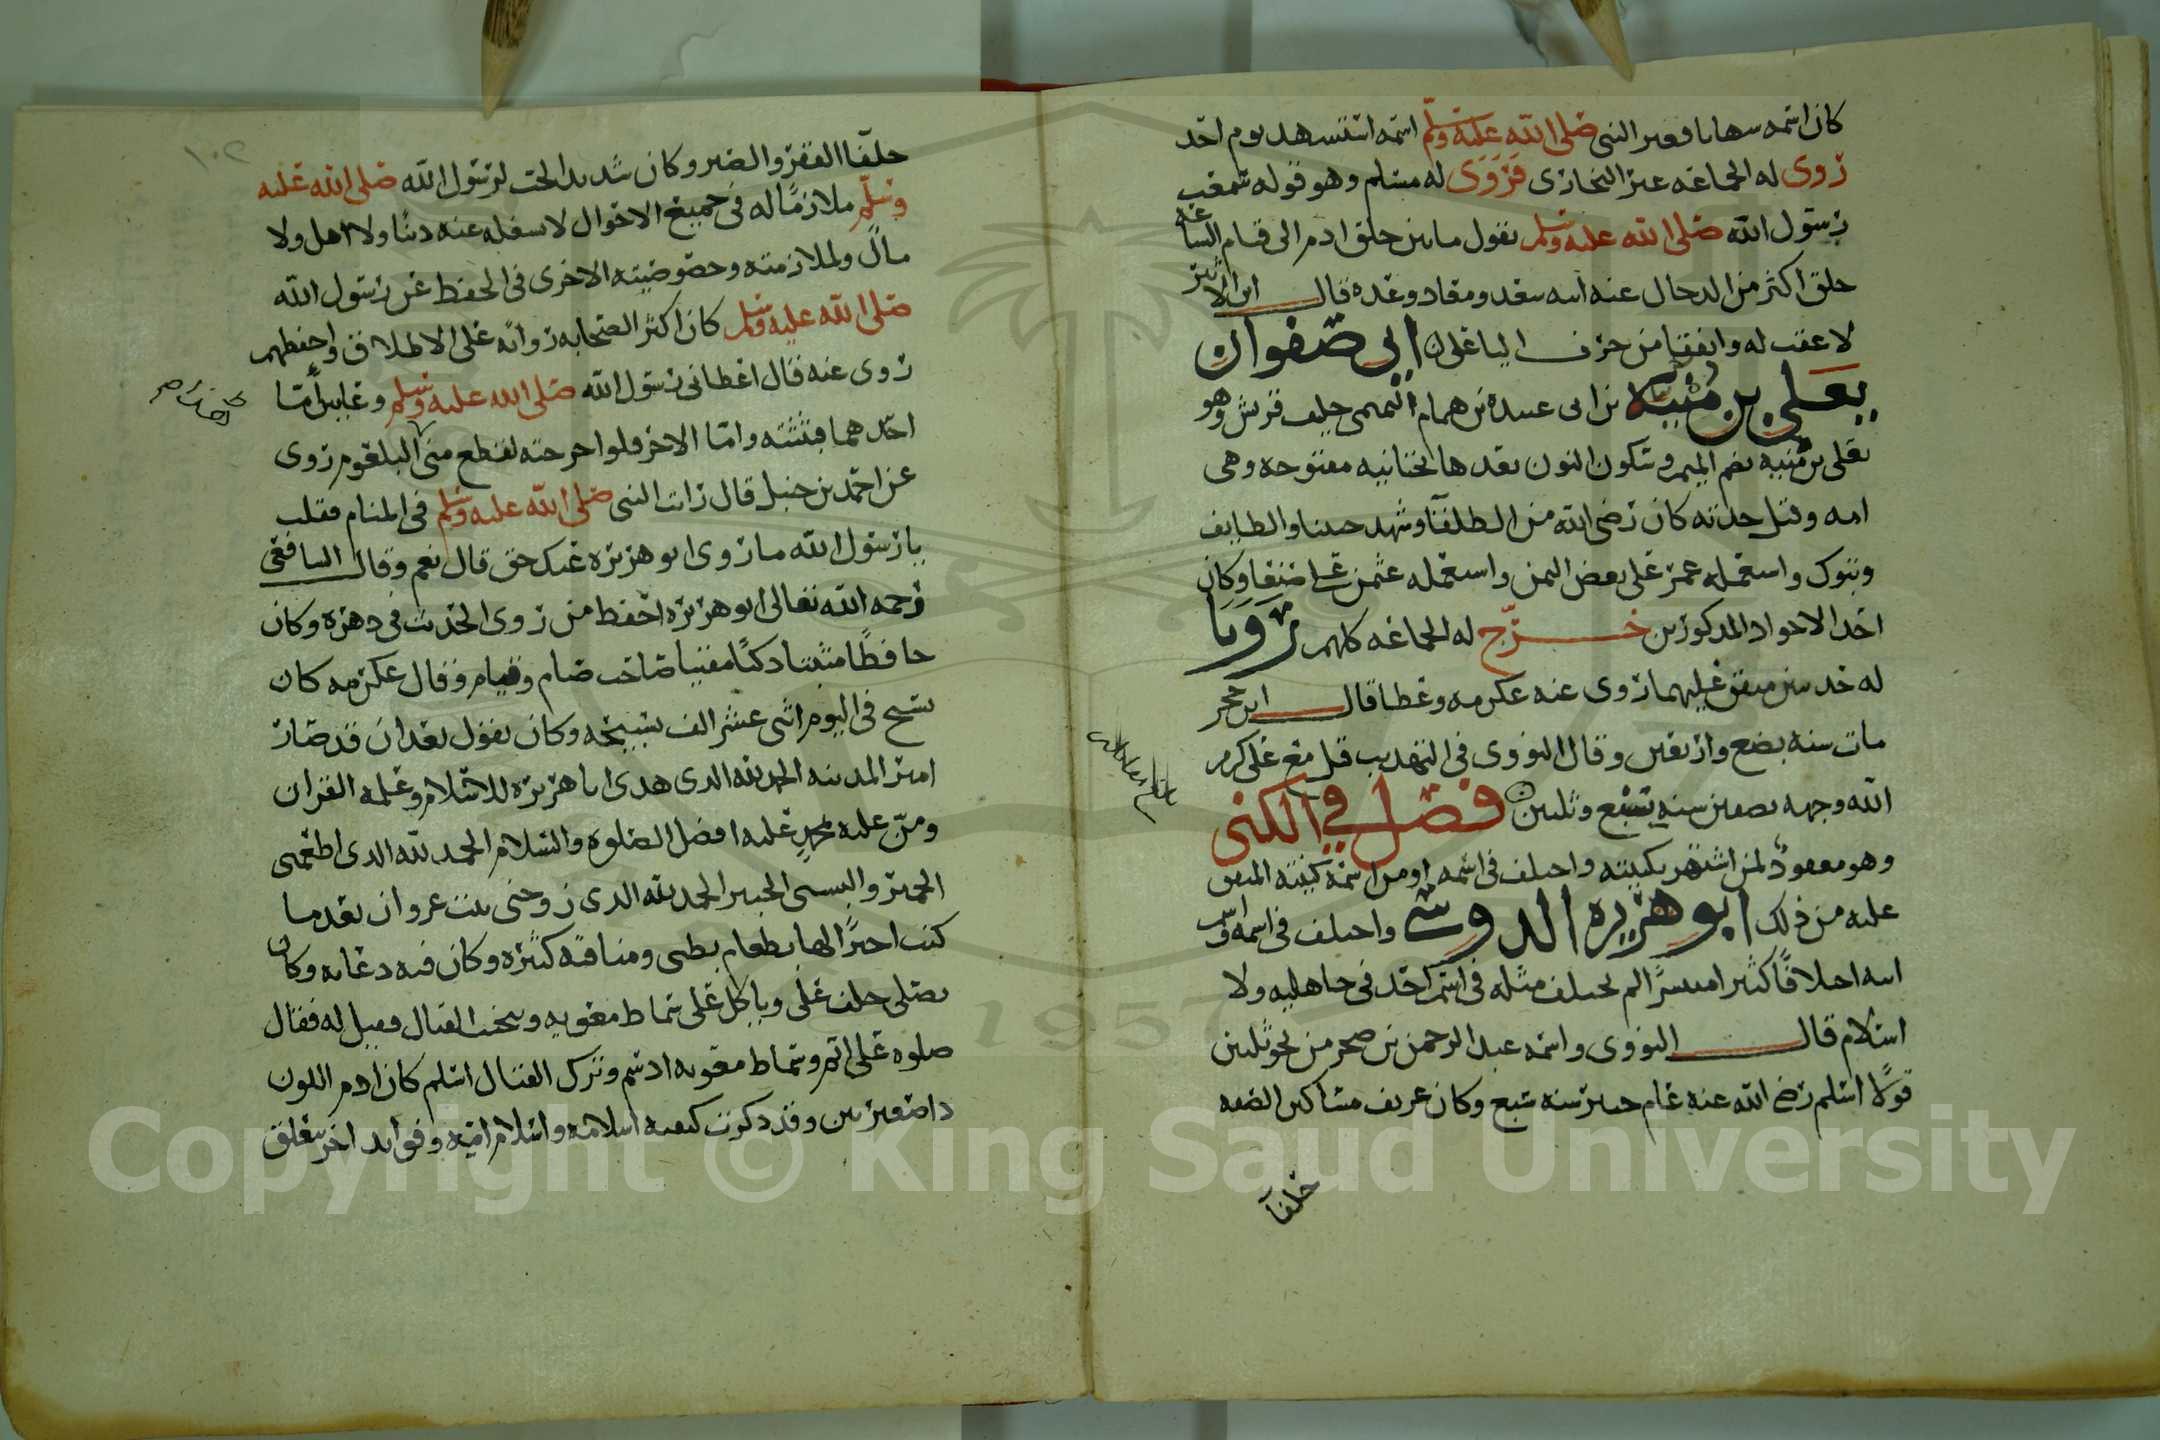 كان اسمه سهابا فغير النبي صلى الله عليه وسلم اسمه استشهد يوم احد
روى له الجماعه غير البخارى فروى له مسلم وهو قوله سمعت
رسول الله صلى الله عليه وسلم يقول ما بين خلق ادم الى قيام الساعه
خلق اكثر من الدجال عنه ابنه سعد ومعاد وعده قال ابن الاثير
لا عقب له واتفقا من حرف اليا على ابى صفوان
يعلى بن منيه بن ابى عبيده بن همام التميمى حليف قريش وهو
يعلى بن منيه بضم الميم وسكون النون بعدها تحتانيه مفتوحه وهى
امه وقيل جدته كان رضى الله من الطلقآ وشهد حنينا والطايف
وتبوك واستعمله عمر على بعض اليمن واستعمله عثمن على صنعا وكان
احد الاجواد المذكورين خرّج له الجماعه كلهم مرويا
له حديثين متفق عليهما روى عنه عكرمه وعطا قال ابن حجر
مات سنه بضع واربعين وقال النووى فى التهذيب قتل مع على كرم
الله وجهه بصفين سنه سبع وثلثين فصل في الكنى
وهو معقود لمن اشتهر بكنيته واختلف فى اسمه او من اسمه كنيته المتفق
عليه من ذلك ابو هريره الدوسي واختلف فى اسمه واسم
ابيه اختلافًا كثيرا منتشرًا لم يختلف مثله فى اسم احد فى جاهليه ولا
اسلام قال النووى واسمه عبد الرحمن بن صخر من نحو ثلثين
قولًا اسلم رضى الله عنه عام خيبر سنه سبع وكان عريف مساكين الصفه
حلفآ
١٠٢
حلفآ الفقر والصبر وكان شديد الحب لرسول الله صلى الله عليه
وسلم ملازمًا له فى جميع الاحوال لا يشغله عنه دنيا ولا اهل ولا
مال ولملازمته وخصوصيته الاخرى فى الحفظ عن رسول الله
صلى الله عليه وسلم كان اكثر الصحابه روايه على الاطلاق واحفظهم
روى عنه قال اعطانى رسول الله صلى الله عليه وسلم وعايين امّا
احدهما فبثثته وامّا الاخر فلو اخرجته لقطع منى البلعوم روى
عن احمد بن حنبل قال رايت النبى صلى الله عليه وسلم فى المنام فقلت
يا رسول الله ما روى ابو هريره عنك حق قال نعم وقال الشافعى
رحمه الله تعالى ابو هريره احفظ من روى الحديث فى دهره وكان
حافظًا مثبتا ذكيًا مفتيا صاحب صيام وقيام وقال عكرمه كان
يسبح فى اليوم اثنى عشر الف تسبيحه وكان يقول بعد ان قد صار
امير المدينه الحمد لله الذى هدى ابا هريره للاسلام وعلمه القران
ومنّ عليه بمحمدٍ عليه افضل الصلوه والسلام الحمد لله الذى اطعمنى
الخمير والبسنى الحبير الحمد لله الذى زوجنى بنت غزوان بعد ما
كنت اجيرًا لها بطعام بطنى ومناقبه كثيره وكان فيه دعابه وكان
يصلى خلف على وياكل على سماط معويه ويتجنب القتال فقيل له فقال
صلوه على اتم وسماط معويه ادسم وترك القتال اسلم كان ادم اللون
ذا ضفيرتين وقد ذكرت كيفيه اسلامه واسلام امّه وفوايد اخر تتعلق